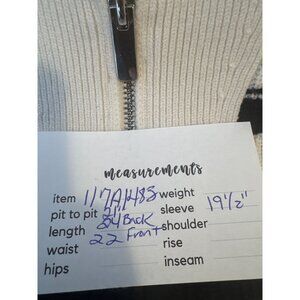 measurements
item weight
pit to pit sleeve 19 1/2"
length Back shoulder
waist 22 Front rise
hips inseam